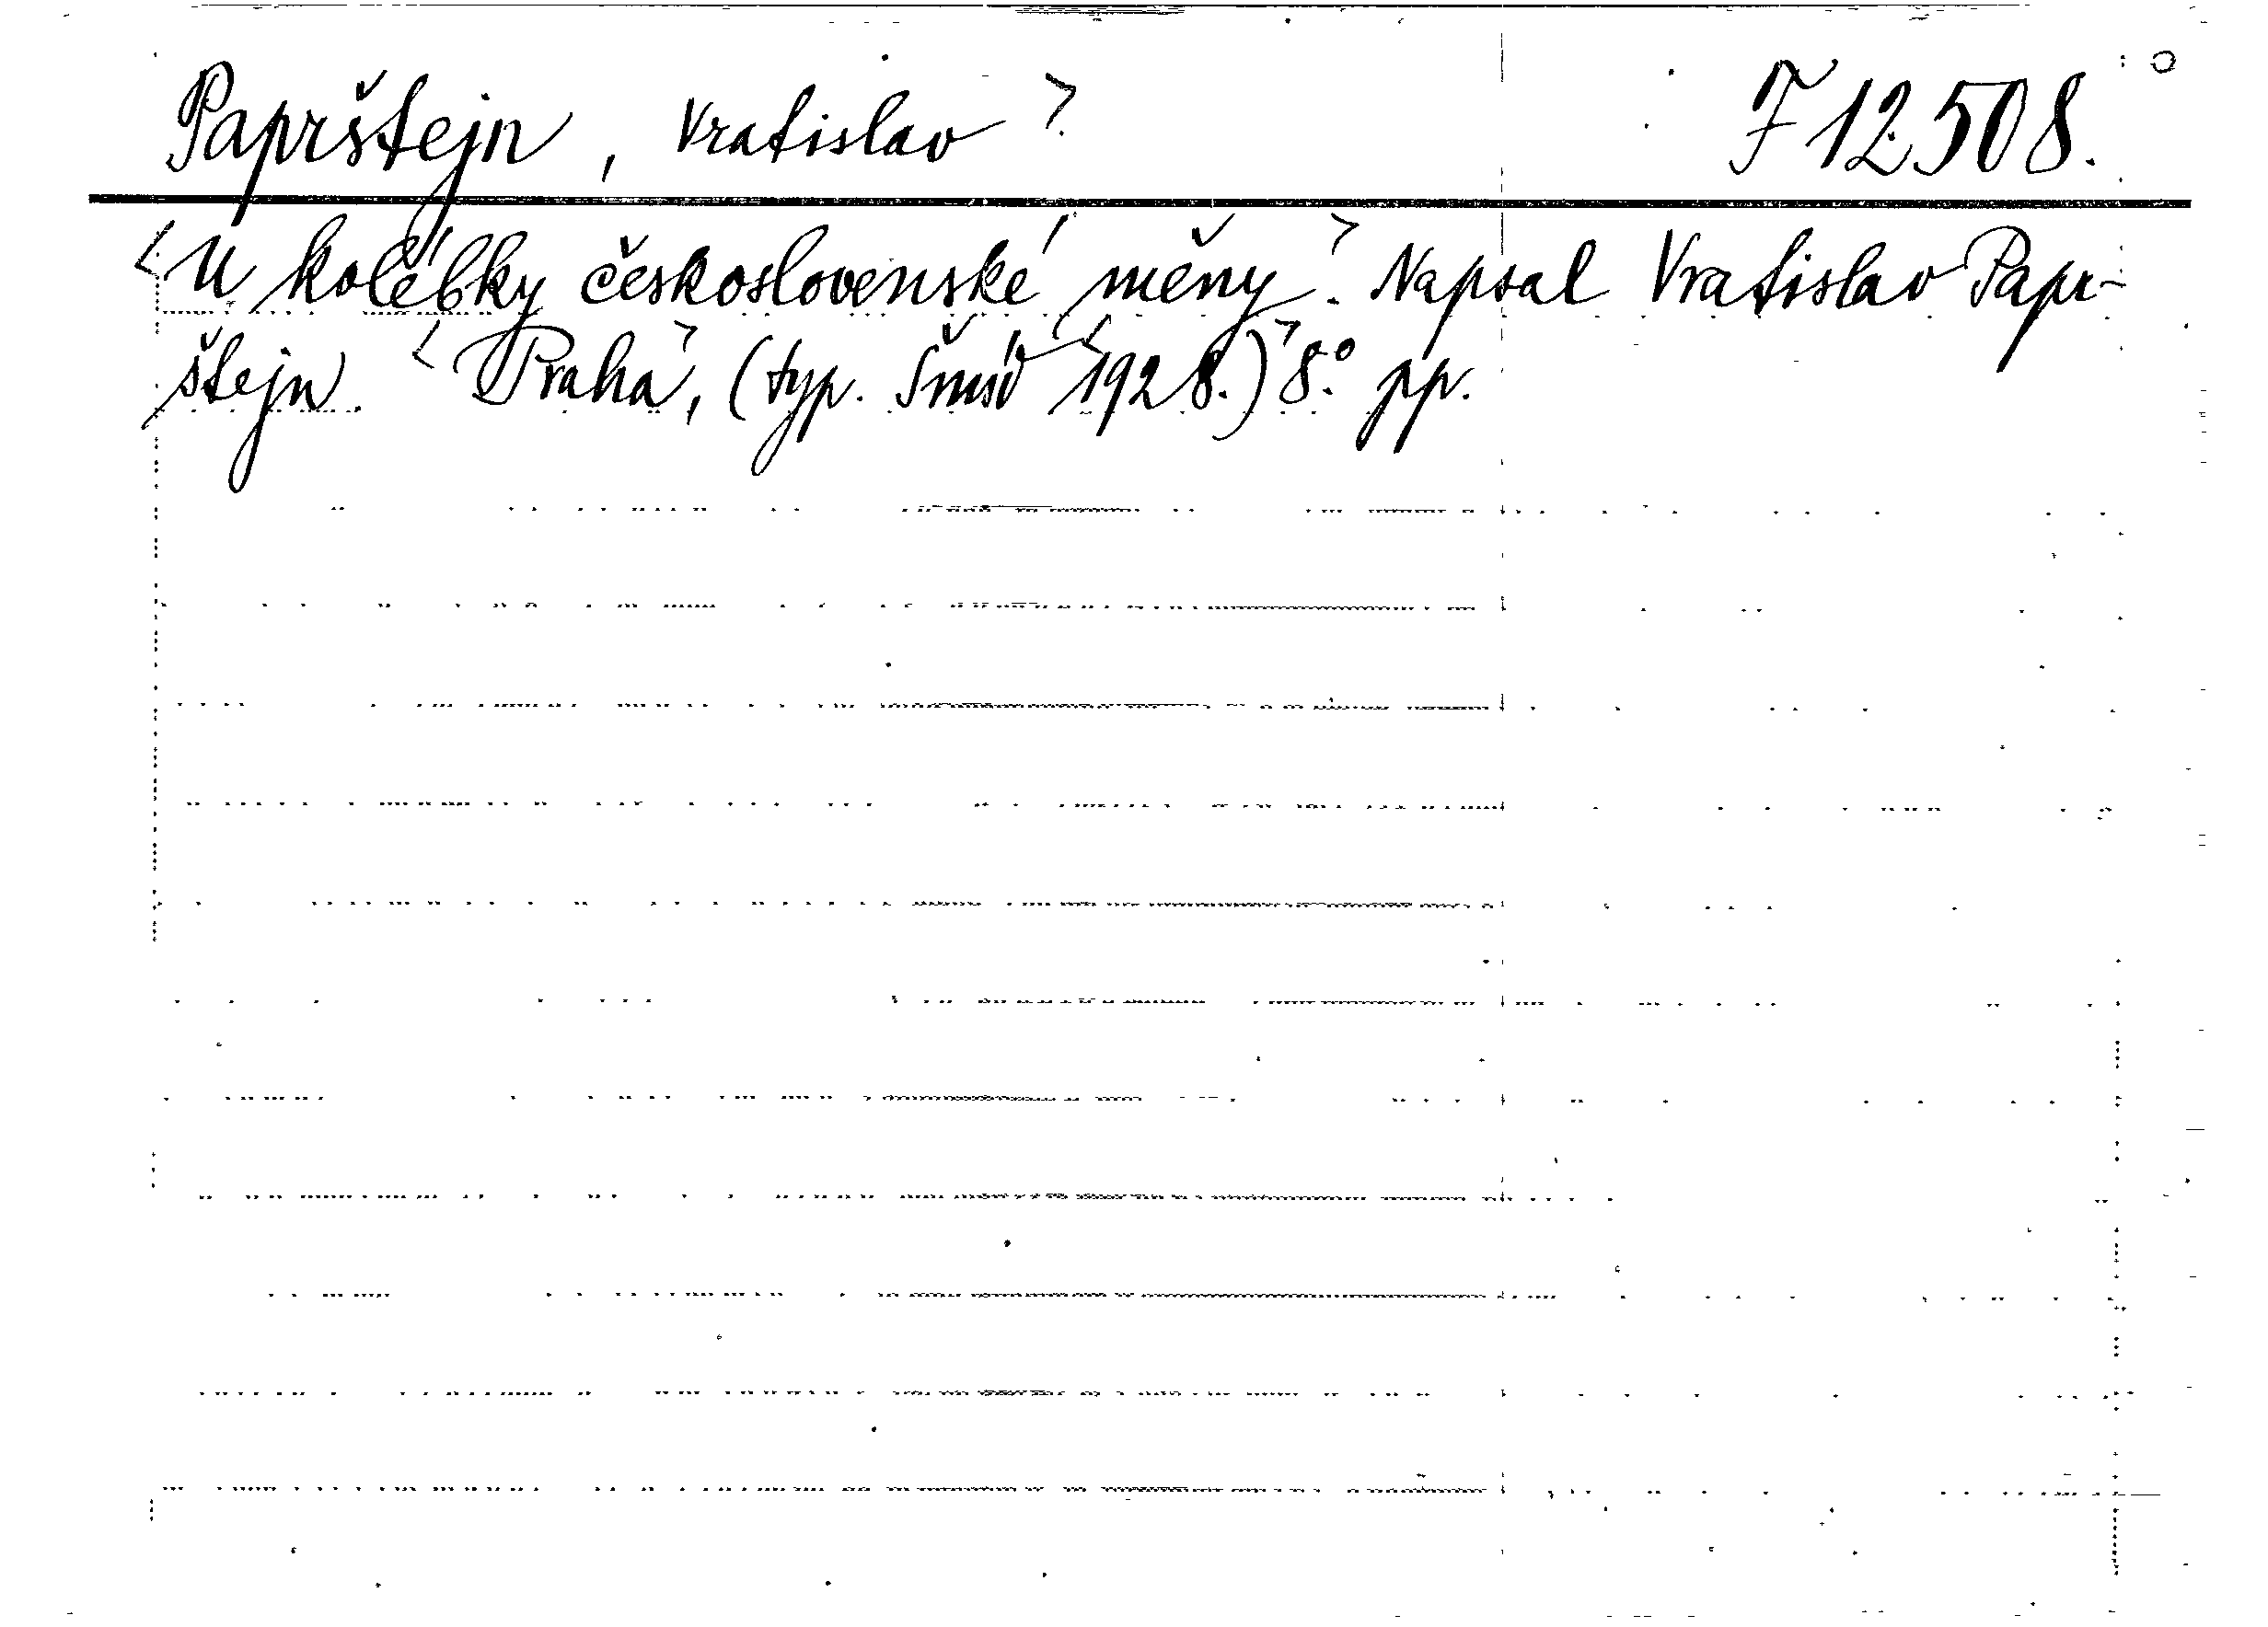 Paprštejn, Vratislav > F 12.508.
<U kolébky československé měny>. Napsal Vratislav Papr-
štejn. <Praha>, (typ. Šmíd <1928.)> 8.° pp.